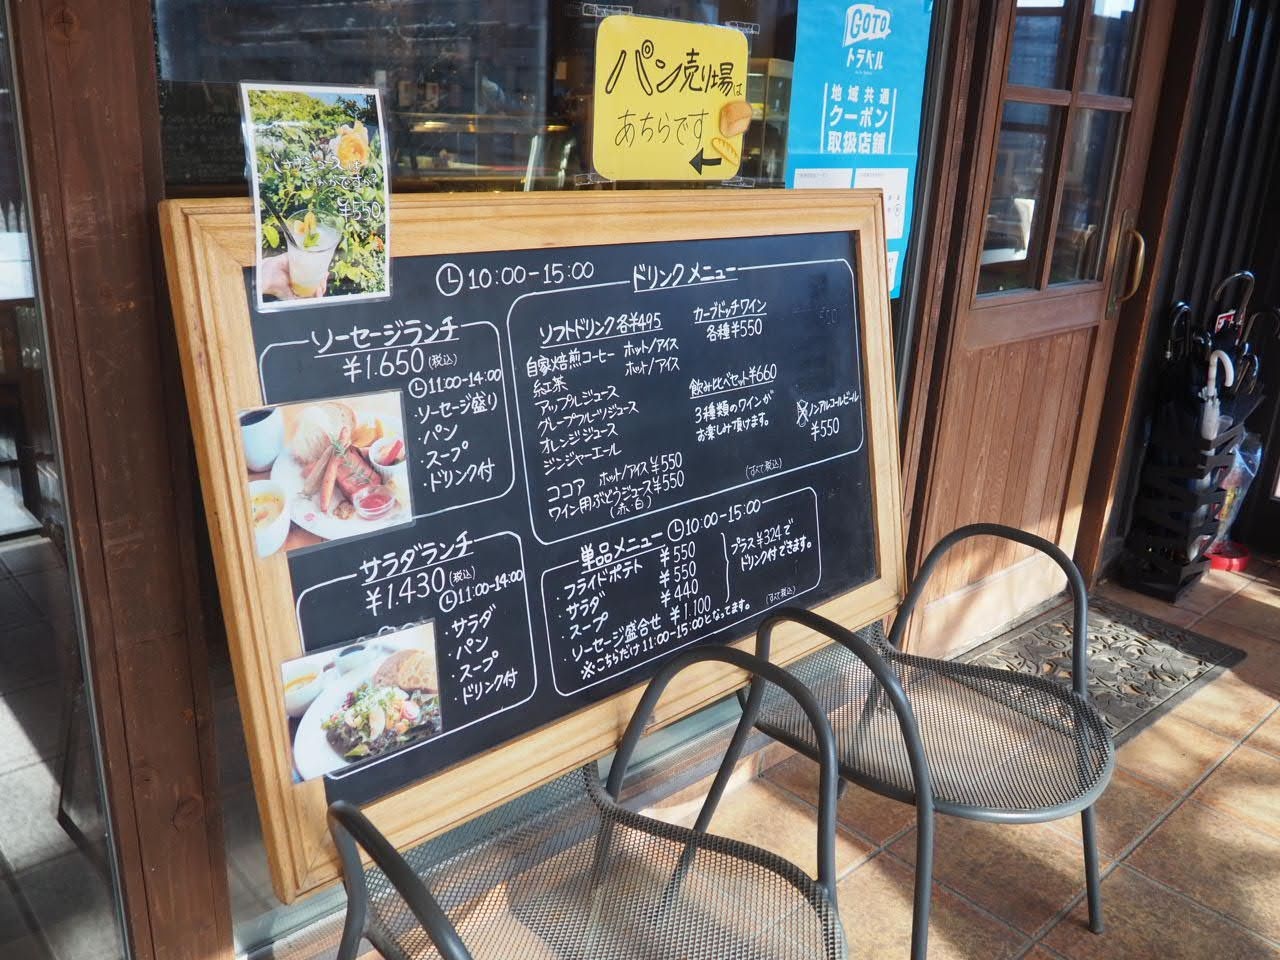 パン売り場は
あちらです
GOTO
トラベル
地域共通
クーポン
取扱店舗
¥550
10:00-15:00
ソーセージランチ
¥1.650(税込)
11:00-14:00
・ソーセージ盛り
・パン
・スープ
・ドリンク付
サラダランチ
¥1.430(税込)
11:00-14:00
・サラダ
・パン
・スープ
・ドリンク付
ドリンクメニュー
ソフトドリンク各¥495
自家焙煎コーヒー ホット/アイス
紅茶 ホット/アイス
アップルジュース
グレープフルーツジュース
オレンジジュース
ジンジャーエール
ココア ホット/アイス ¥550
ワイン用ぶどうジュース ¥550
(赤・白)
カーブドッチワイン
各種¥550
飲み比べセット¥660
3種類のワインが
お楽しみ頂けます。
ノンアルコールビール
¥550
(すべて税込)
単品メニュー 10:00-15:00
・フライドポテト ¥550
・サラダ ¥550
・スープ ¥440
・ソーセージ盛合せ ¥1.100
※こちらだけ11:00-15:00となってます。
プラス¥324で
ドリンク付できます。
(すべて税込)